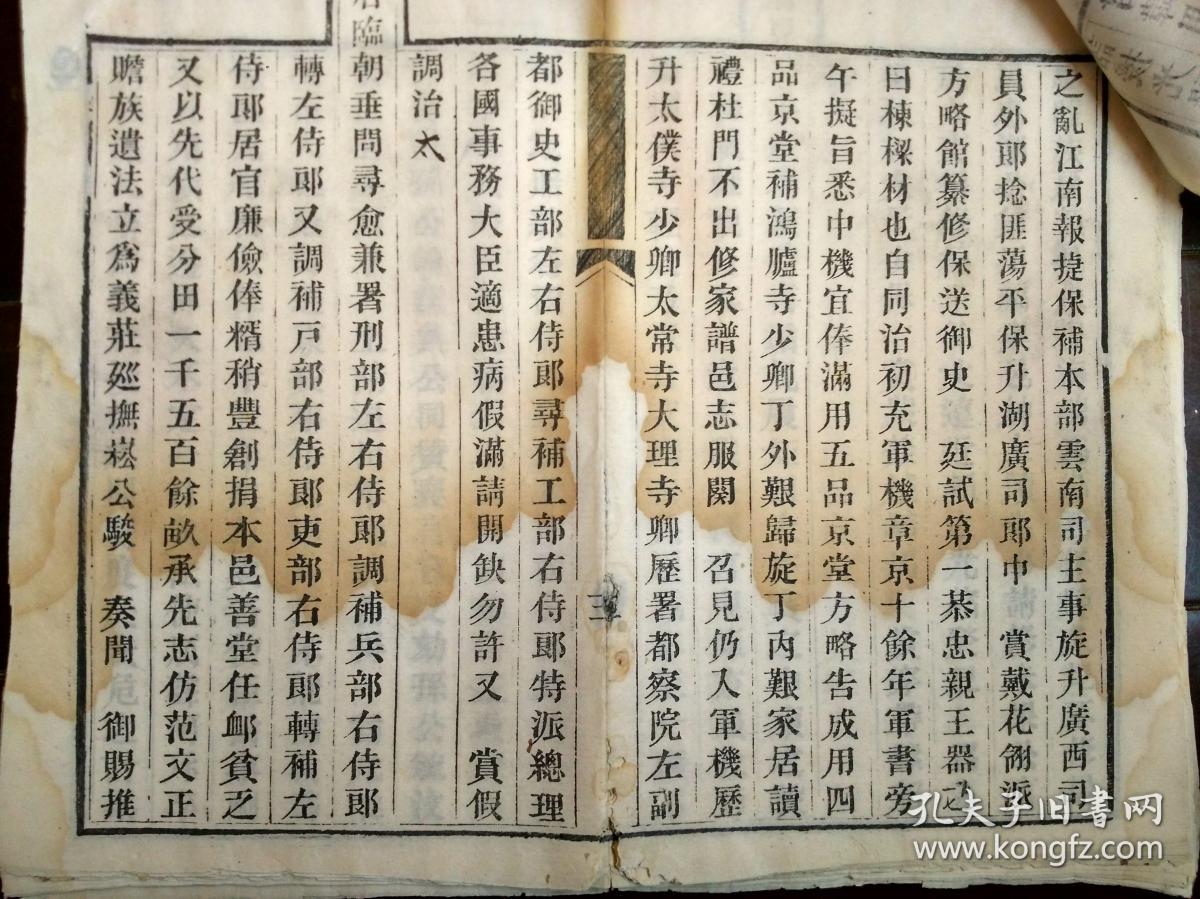 之亂江南報捷保補本部雲南司主事旋升廣西司
員外郎捻匪蕩平保升湖廣司郎中　賞戴花翎派
方略館纂修保送御史　廷試第一恭忠親王器之
曰棟樑材也自同治初充軍機章京十餘年軍書旁
午擬旨悉中機宜俸滿用五品京堂方略告成用四
品京堂補鴻臚寺少卿丁外艱歸旋丁內艱家居讀
禮杜門不出修家譜邑志服闋　召見仍入軍機歷
升太僕寺少卿太常寺大理寺卿歷署都察院左副
三
都御史工部左右侍郎尋補工部右侍郎特派總理
各國事務大臣適患病假滿請開缺勿許又　賞假
調治太
后臨朝垂問尋愈兼署刑部左右侍郎調補兵部右侍郎
轉左侍郎又調補戶部右侍郎吏部右侍郎轉補左
侍郎居官廉儉俸糈稍豐創捐本邑善堂任卹貧乏
又以先代受分田一千五百餘畝承先志仿范文正
贍族遺法立為義莊廵撫崧公駿　奏聞　御賜推
孔夫子旧书网
www.kongfz.com